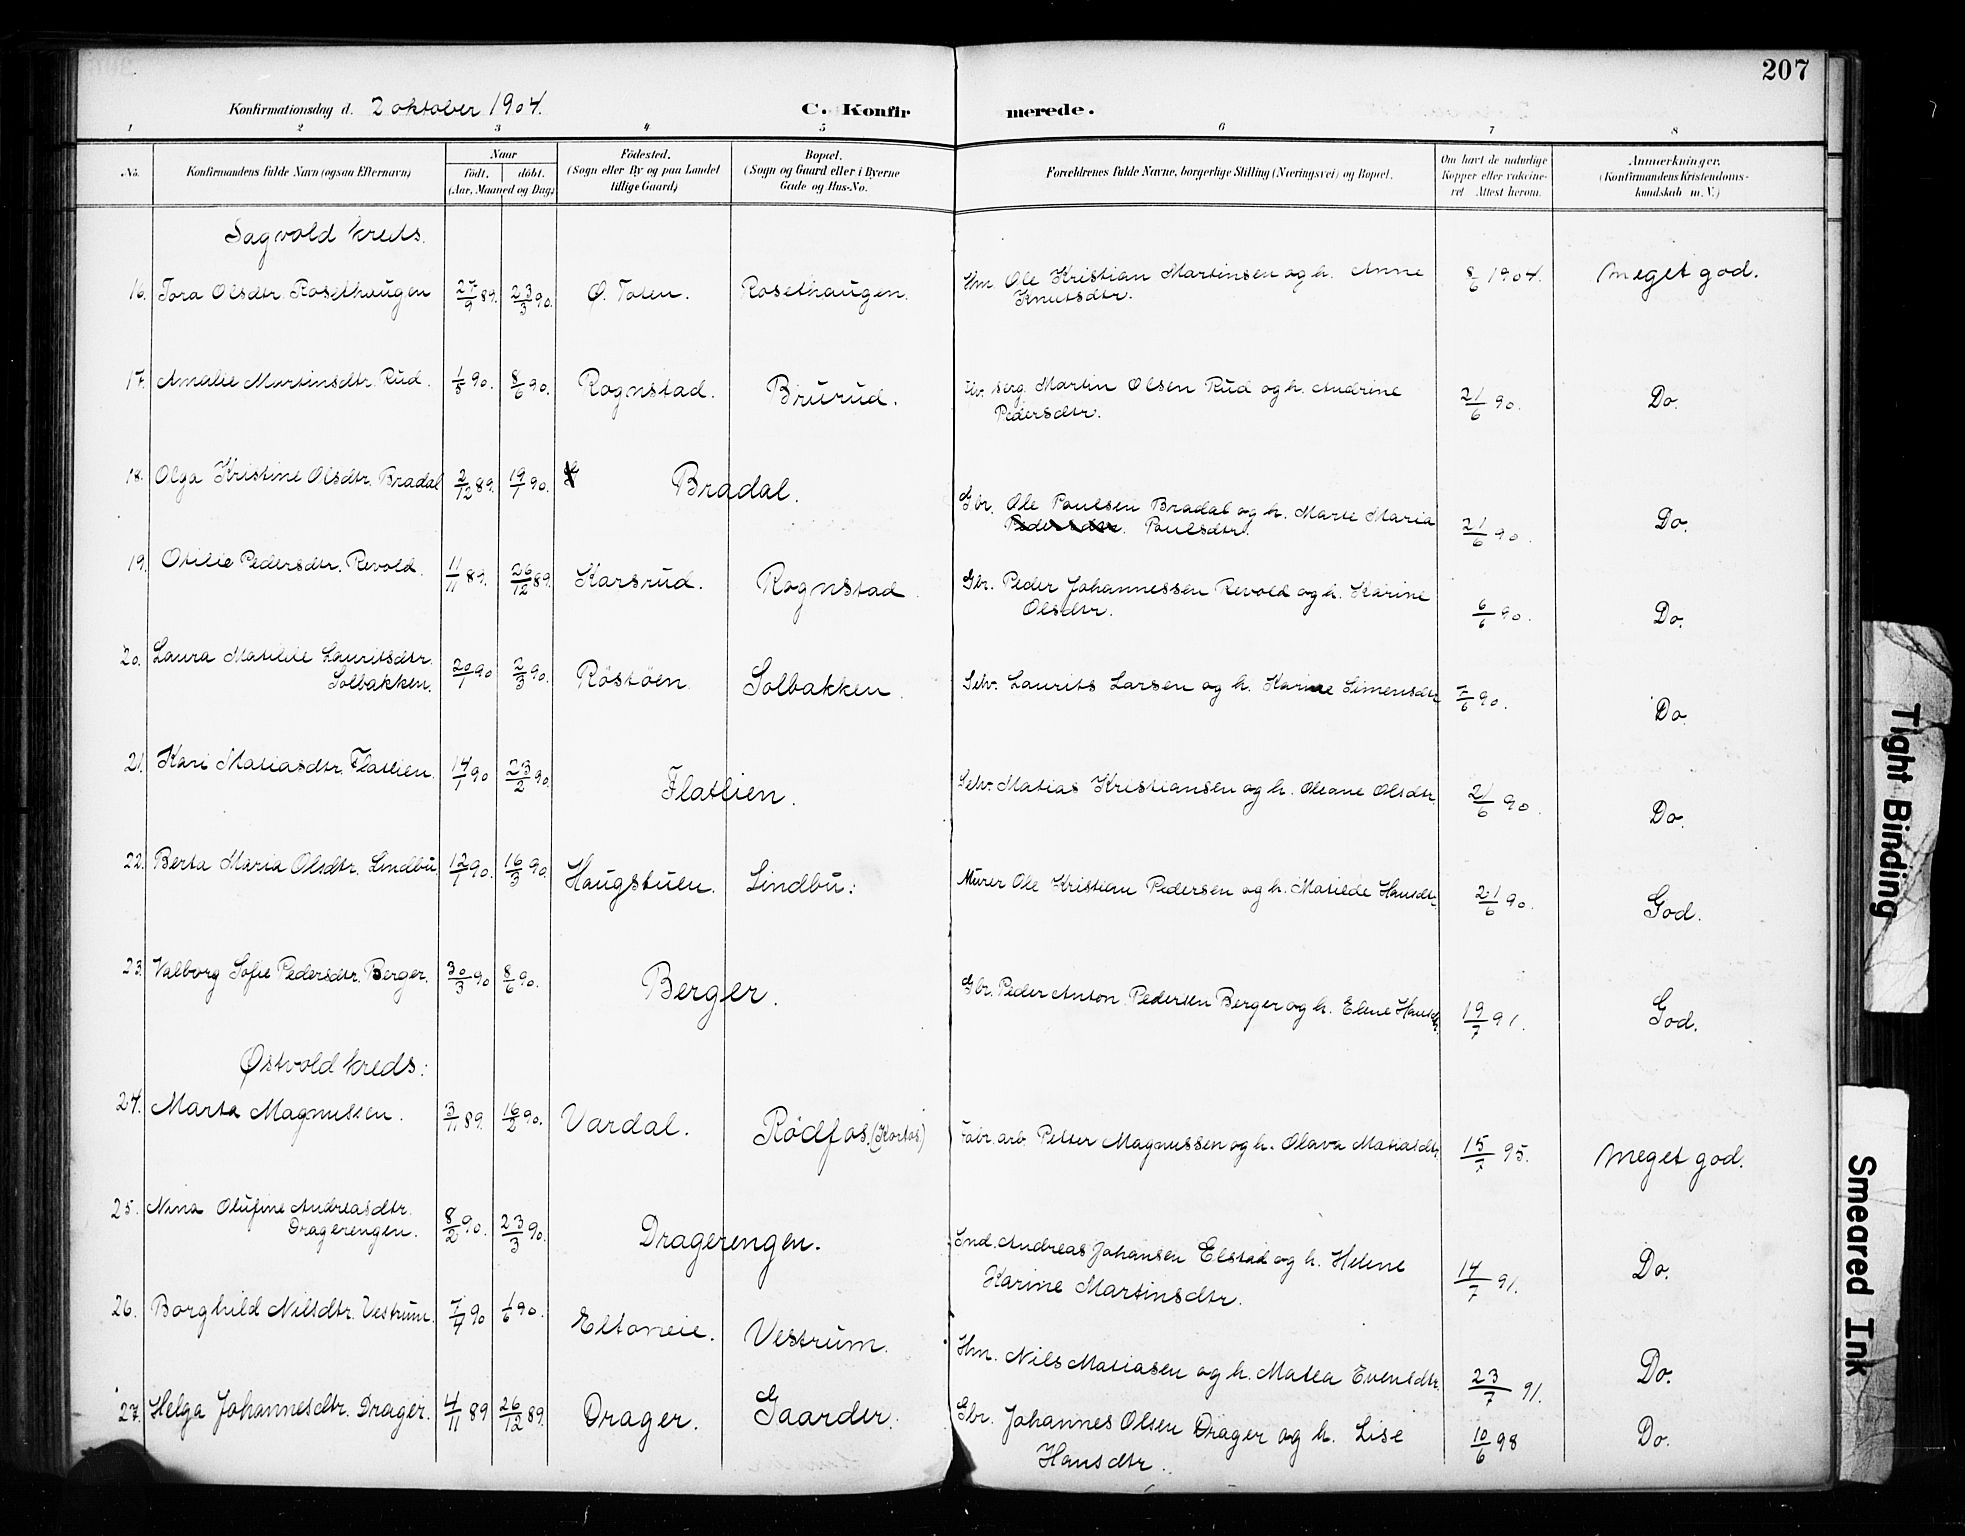 207
Konfirmationsdag d. 2 oktober 1904. C. Konfirmerede.
1 2 3 4 5 6 7 8
No. Konfirmandens fulde Navn (ogsaa Efternavn) Naar født. døbt. (Aar, Maaned og Dag) Fødested. (Sogn eller By og paa Landet tillige Gaard) Bopæl. (Sogn og Gaard eller i Byerne Gade og Hus-No. Forældrenes fulde Navne, borgerlige Stilling (Næringsvei) og Bopæl. Om havt de naturlige Kopper eller vakcineret Attest herom. Anmærkninger. (Konfirmandens Kristendomskundskab m. V.)
Sagvold kreds.
16. Tora Olsdtr. Rosethaugen 27/9 89. 23/3 90. Ø. Toten. Rosethaugen. Hm. Ole Kristian Martinsen og h. Anne Knutsdtr. 8/6 1904. Meget god.
17. Amalie Martinsdtr. Rud. 1/5 90. 8/6 90. Rognstad. Brurud. serg. Martin Olsen Rud og h. Andrine Pedersdtr. 21/6 90. Do.
18. Olga Kristine Olsdtr. Bradal 2/12 89. 19/1 90. Bradal. Gbr. Ole Paulsen Bradal og h. Marte Maria Pedersdtr. Paulsdtr. 21/6 90. Do.
19. Otilie Pedersdtr. Revold. 11/11 89. 26/12 89. Karsrud. Rognstad. Gbr. Peder Johannessen Revold og h. Karine Olsdtr. 6/6 90. Do.
20. Laura Matilde Lauritsdtr.
Solbakken. 20/1 90 2/3 90. Röstöen. Solbakken. Selv. Laurits Larsen og h. Karine Simensdtr. 7/6 90. Do.
21. Kari Matiasdtr. Flatlien. 14/1 90 23/2 90. Flatlien. Selv. Matias Kristiansen og h. Oleane Olsdtr. 21/6 90. Do.
22. Berta Maria Olsdtr. Lindbu 12/1 90. 16/3 90 Haugstuen. Lindbu. Murer Ole Kristian Pedersen og h. Matilde Hansdtr. 21/6 90. God.
23. Valborg Sofie Pedersdtr. Berger. 30/3 90 8/6 90. Berger. Gbr. Peder Anton Pedersen Berger og h. Eline Hansdtr. 19/7 91. God.
Østvold kreds:
24. Marta Magnussen. 3/11 89. 16/2 90. Vardal. Rödfos. (Kortos) Fabr. arb. Petter Magnussen og h. Olava Matiasdtr. 15/7 95. Meget god.
25. Nina Olufine Andreasdtr.
Dragerengen. 8/2 90. 23/3 90. Dragerengen. Ind. Andreas Johansen Elstad og h. Helene Karine Martinsdtr. 14/7 91. Do.
26. Borghild Nilsdtr. Vestrum. 7/4 90 1/6 90. Eltoneie. Vestrum. Hm. Nils Matiasen og h. Matea Evensdtr. 23/7 91. Do.
27. Helga Johannesdtr. Drager. 4/11 89 26/12 89. Drager. Gaarder. Gbr. Johannes Olsen Drager og h. Lise Hansdtr. 10/6 98 Do.
Tight Binding
Smeared Ink